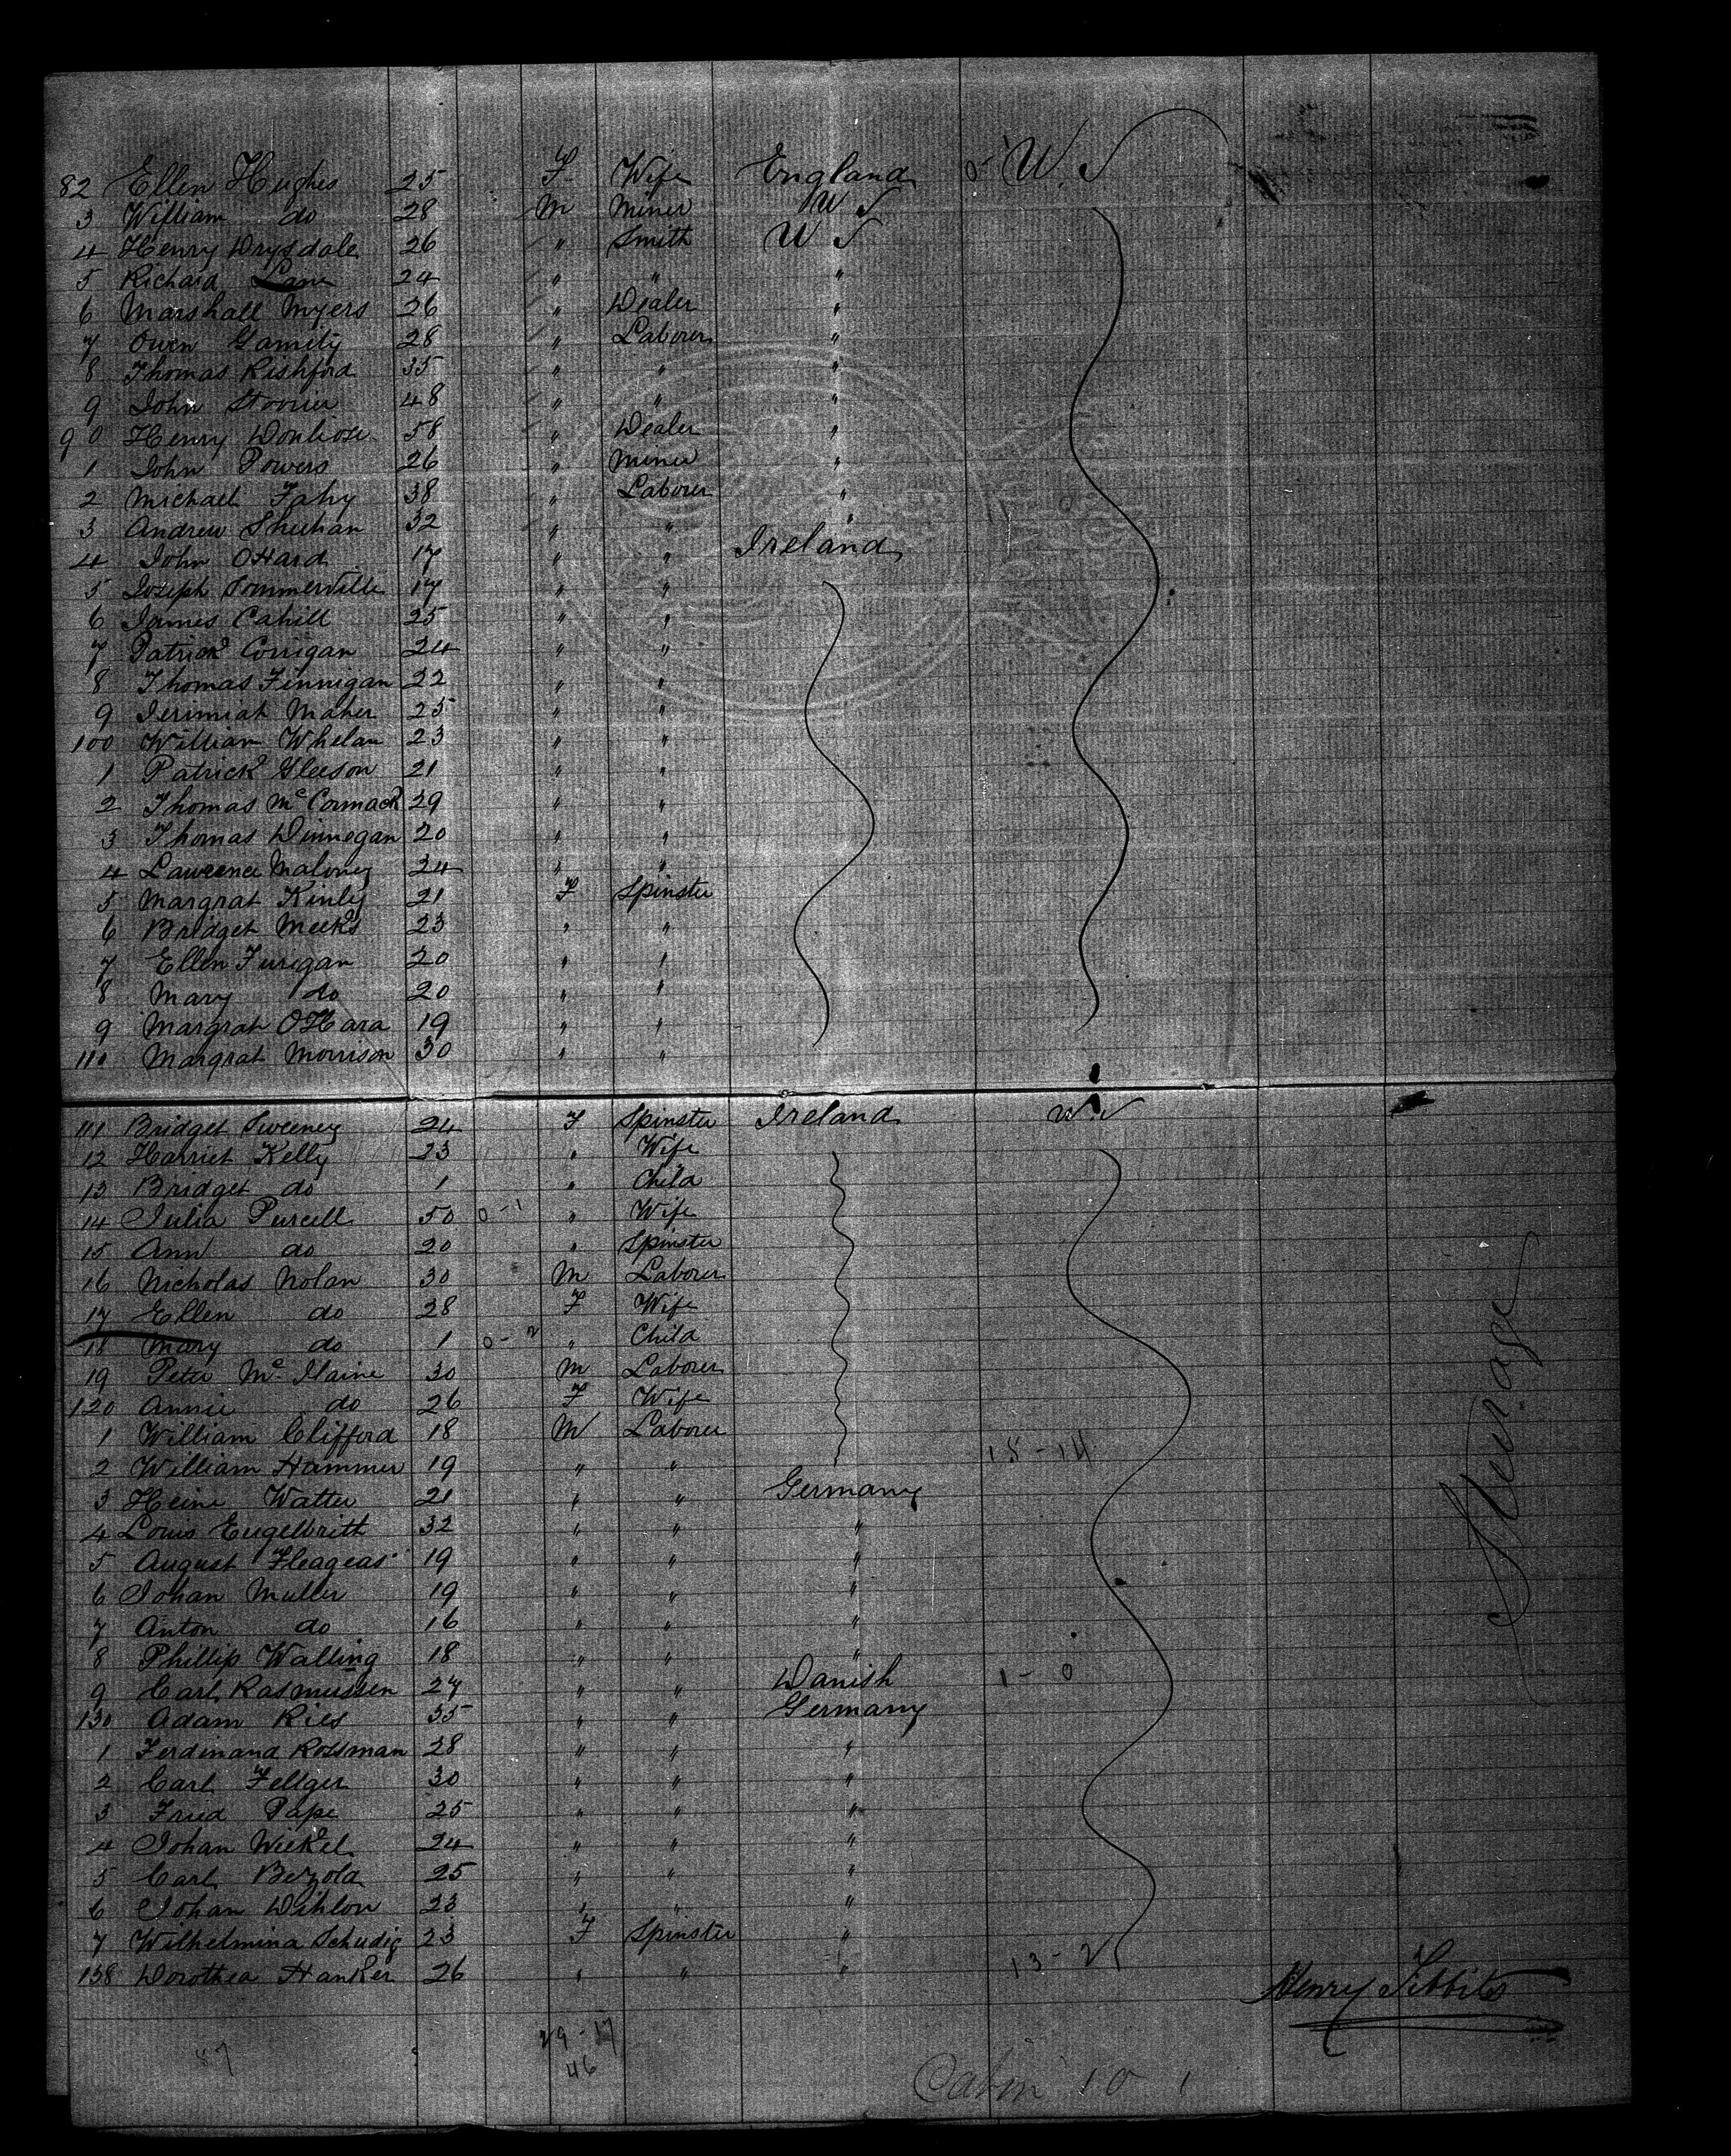 82 Ellen Hughes 25 F Wife England U. S
3 William do 28 M Miner U S
4 Henry Drysdale 26 " Smith U S
5 Richard Lane 24 " " "
6 Marshall Myers 26 " Dealer "
7 Owen Gamity 28 " Laborer "
8 Thomas Rishford 35 " " "
9 John 48 " " "
90 Henry 58 " Dealer "
1 John Powers 26 " Miner "
2 Michael Fahy 38 " Laborer "
3 Andrew Sheehan 32 " " "
4 John OHard 17 " " Ireland
5 Joseph Sommerville 17 " "
6 James Cahill 25 " "
7 Patrick Corrigan 24 " "
8 Thomas Finnigan 22 " "
9 Jerimiah Maher 25 " "
100 William Whelan 23 " "
1 Patrick Gleeson 21 " "
2 Thomas McCormack 29 " "
3 Thomas Dinnegan 20 " "
4 Lawrence Maloney 24 " "
5 Margrat Kinly 21 F Spinster
6 Bridget Meeks 23 " "
7 Ellen Furigan 20 " "
8 Mary do 20 " "
9 Margrat OHara 19 " "
110 Margrat Morrison 30 " "
111 Bridget Sweeney 24 F Spinster Ireland U. S
12 Harriet Kelly 23 " Wife
13 Bridget do 1 " Child
14 Julia Purcell 50 0-1 " Wife
15 Ann do 20 " Spinster
16 Nicholas Nolan 30 M Laborer
17 Ellen do 28 F Wife
18 Mary do 1 0-2 " Child
19 Peter Mc Ilaine 30 M Laborer
120 Annie do 26 F Wife
1 William Clifford 18 M Laborer
2 William Hammer 19 " " 15-14
3 Heini Watter 21 " " Germany
4 Louis Eugelbrith 32 " " "
5 August Fleageas 19 " " "
6 Johan Muller 19 " " "
7 Anton do 16 " " "
8 Phillip Walling 18 " " "
9 Carl Rasmussen 27 " " Danish 1-0
130 Adam Ries 35 " " Germany
1 Ferdinand Rossman 28 " " "
2 Carl Fellger 30 " " "
3 Fried Pape 25 " " "
4 Johan Wiekel 24 " " "
5 Carl Bezold 25 " " "
6 Johan Dihlon 23 " " "
7 Wilhelmina Schudig 23 F Spinster "
138 Dorothea Hanker 26 " " " 13-2
Steerage
Henry Tibbits
29-17
46
87
Cabin 10 1